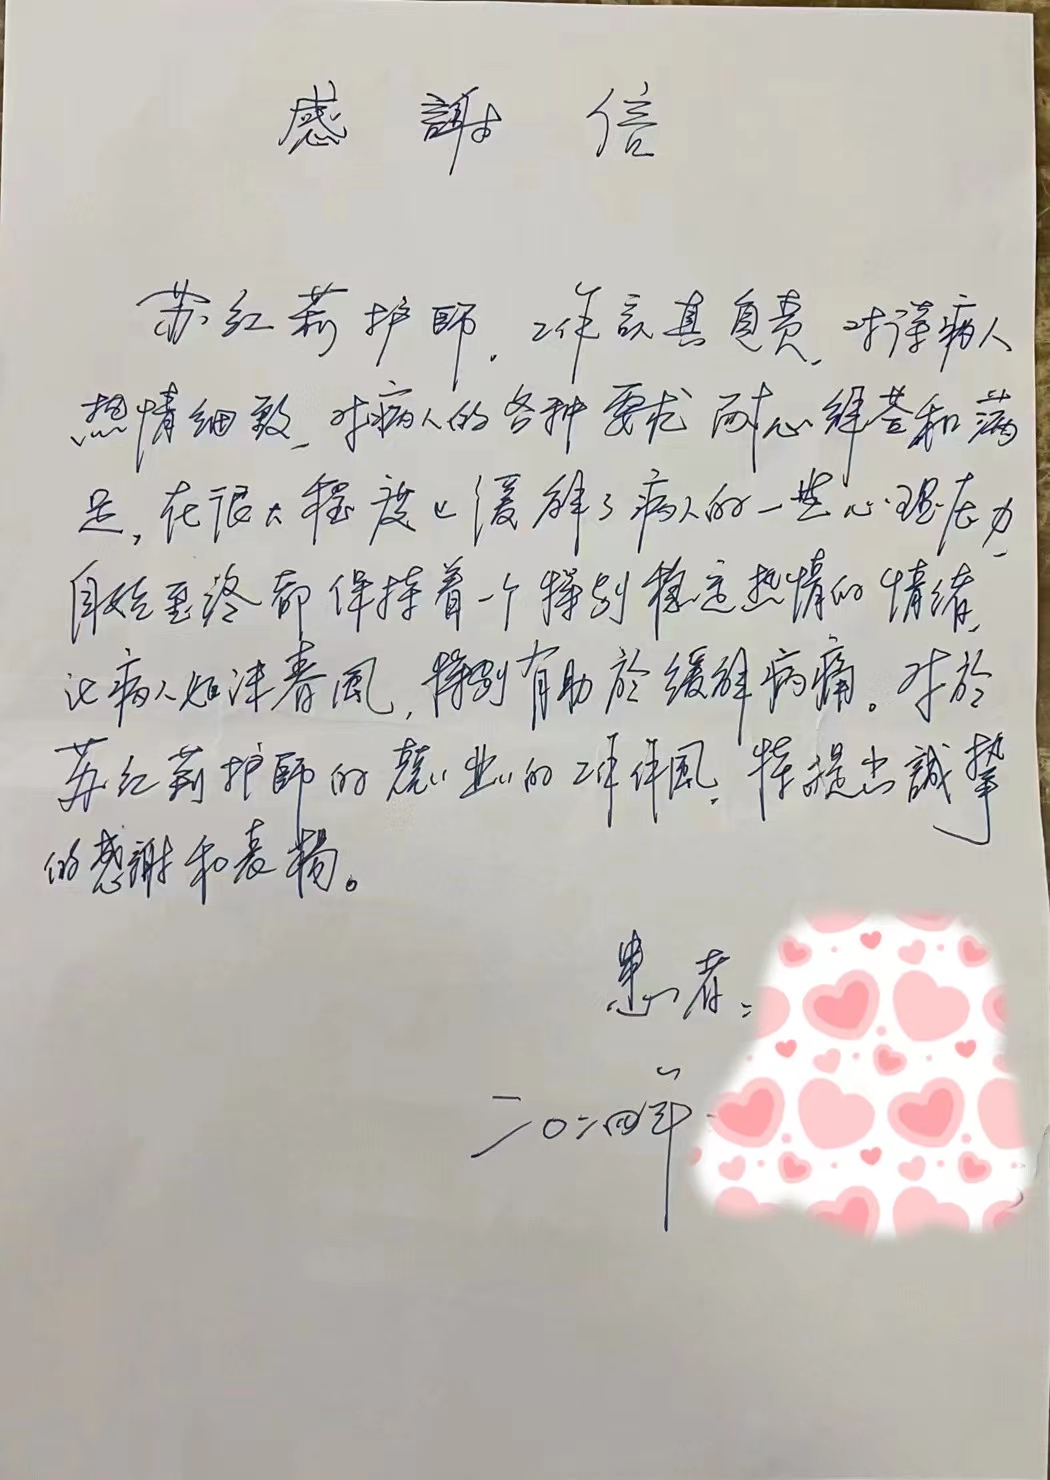 感謝信
苏红莉护師，工作認真負责，对待病人
热情细致，对病人的各种要求耐心解答和满
足，在很大程度上缓解了病人的一些心理压力，
自始至终都保持着一个特别稳定热情的情绪，
让病人如沐春風，特别有助於缓解病痛。对於
苏红莉护師的兢业的工作作風，特提出誠挚
的感謝和表揚。
患者：
二〇二四年